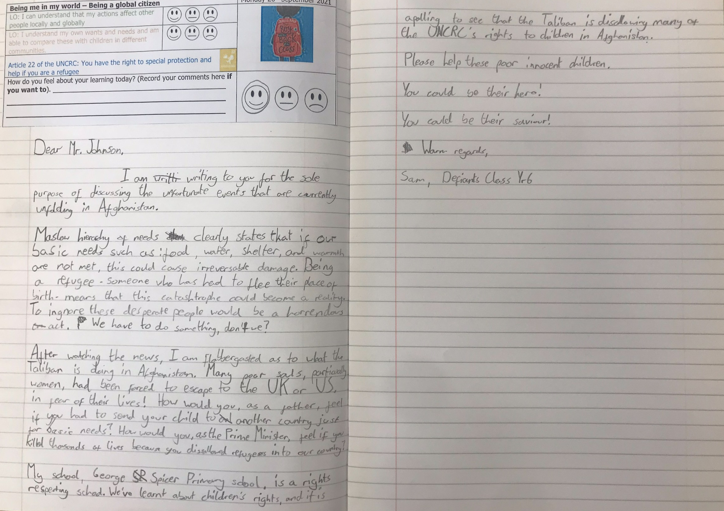 Being me in my world – Being a global citizen
LO: I can understand that my actions affect other
people locally and globally
LO: I understand my own wants and needs and am
able to compare these with children in different
Article 22 of the UNCRC: You have the right to special protection and
help if you are a refugee
How do you feel about your learning today? (Record your comments here if
you want to).
September 2021
Dear Mr. Johnson,
I am writting writing to you for the sole
purpose of discussing the unfortunate events that are currently
unfolding in Afghanistan.
Maslow hierachy of needs clearly states that if our
basic needs such as: food, water, shelter, and warmth,
are not met, this could cause irreversable damage. Being
a refugee - someone who has had to flee their place of
birth - means that this catashtrophe could become a reality.
To ingnore these desperate people would be a horrendous
act. We have to do something, don't we?
After watching the news, I am flabbergasted as to what the
Taliban is doing in Afghanistan. Many poor souls, particularly
women, had been forced to escape to the UK or US.
in fear of their lives! How would you, as a father, feel
if you had to send your child to another country just
for basic needs? How would you, as the Prime Minister, feel if you
killed thousands of lives because you disallowed refugees into our country?
My school, George SR Spicer Primary school, is a rights
respecting school. We've learnt about children's rights, and it is
apolling to see that the Taliban is disallowing many of
the UNCRC's rights to children in Afghanistan.
Please help these poor innocent children.
You could be their hero!
You could be their saviour!
Warm regards,
Sam, Defiants Class Yr6